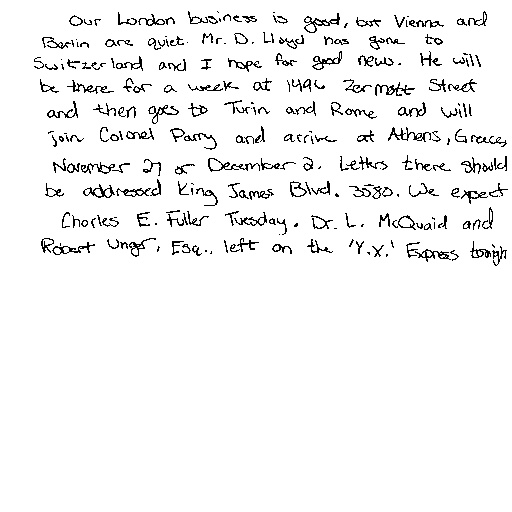 Our London business is good, but Vienna and
Berlin are quiet. Mr. D. Lloyd has gone to
Switzerland and I hope for good news. He will
be there for a week at 1496 Zermott Street
and then goes to Turin and Rome and will
join Colonel Parry and arrive at Athens, Greece,
November 27 or December 2. Letters there should
be addressed King James Blvd. 3580. We expect
Charles E. Fuller Tuesday. Dr. L. McQuaid and
Robert Unger, Esq., left on the 'Y.X.' Express tonigh